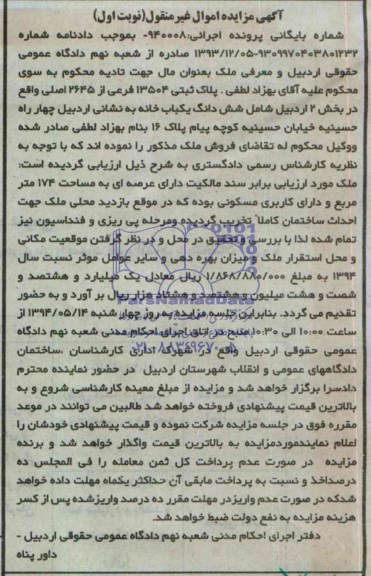 آگهی مزایده اموال غیر منقول(نوبت اول)
شماره بایگانی پرونده اجرائی:۹۴۰۰۰۸- بموجب دادنامه شماره
۹۳۰۹۹۷۰۴۰۳۸۰۱۲۳۲-۱۳۹۳/۱۲/۰۵ صادره از شعبه نهم دادگاه عمومی
حقوقی اردبیل و معرفی ملک بعنوان مال جهت تادیه محکوم به سوی
محکوم علیه آقای بهزاد لطفی . پلاک ثبتی ۱۳۵۰۴ فرعی از ۲۶۴۵ اصلی واقع
در بخش ۲ اردبیل شامل شش دانگ یکباب خانه به نشانی اردبیل چهار راه
حسینیه خیابان حسینیه کوچه پیام پلاک ۱۶ بنام بهزاد لطفی صادر شده
ووکیل محکوم له تقاضای فروش ملک مذکور را نموده اند که با توجه به
نظریه کارشناس رسمی دادگستری به شرح ذیل ارزیابی گردیده است:
ملک مورد ارزیابی برابر سند مالکیت دارای عرصه ای به مساحت ۱۷۴ متر
مربع و دارای کاربری مسکونی بوده که در موقع بازدید محلی ملک جهت
احداث ساختمان کاملا تخریب گردیده ومرحله پی ریزی و فنداسیون نیز
تمام شده لذا با بررسی و تحقیق در محل و در نظر گرفتن موقعیت مکانی
و محل استقرار ملک و میزان بهره دهی و سایر عوامل موثر نسبت سال
۱۳۹۴ به مبلغ ۱/۸۶۸/۸۸۰/۰۰۰ ریال معادل یک میلیارد و هشتصد و
شصت و هشت میلیون و هشتصد و هشتاد هزار ریال بر آورد و به حضور
تقدیم می گردد. بنابراین جلسه مزایده به روز چهار شنبه ۱۳۹۴/۰۵/۱۴ از
ساعت ۱۰:۰۰ الی ۱۰:۳۰ صبح در اتاق اجرای احکام مدنی شعبه نهم دادگاه
عمومی حقوقی اردبیل واقع در شهرک اداری کارشناسان ،ساختمان
دادگاههای عمومی و انقلاب شهرستان اردبیل در حضور نماینده محترم
دادسرا برگزار خواهد شد و مزایده از مبلغ معینه کارشناسی شروع و به
بالاترین قیمت پیشنهادی فروخته خواهد شد طالبین می توانند در موعد
مقرره فوق در جلسه مزایده شرکت نموده و قیمت پیشنهادی خودشان را
اعلام نمایندموردمزایده به بالاترین قیمت واگذار خواهد شد و برنده
مزایده در صورت عدم پرداخت کل ثمن معامله را فی المجلس ده
درصداخذ و نسبت به پرداخت مابقی آن حداکثر یکماه مهلت داده خواهد
شدکه در صورت عدم واریزدر مهلت مقرر ده درصد واریزشده پس از کسر
هزینه مزایده به نفع دولت ضبط خواهد شد.
دفتر اجرای احکام مدنی شعبه نهم دادگاه عمومی حقوقی اردبیل -
داور پناه
ParsNamadData
۰۲۱-۸۸۳۴۹۶۷۰